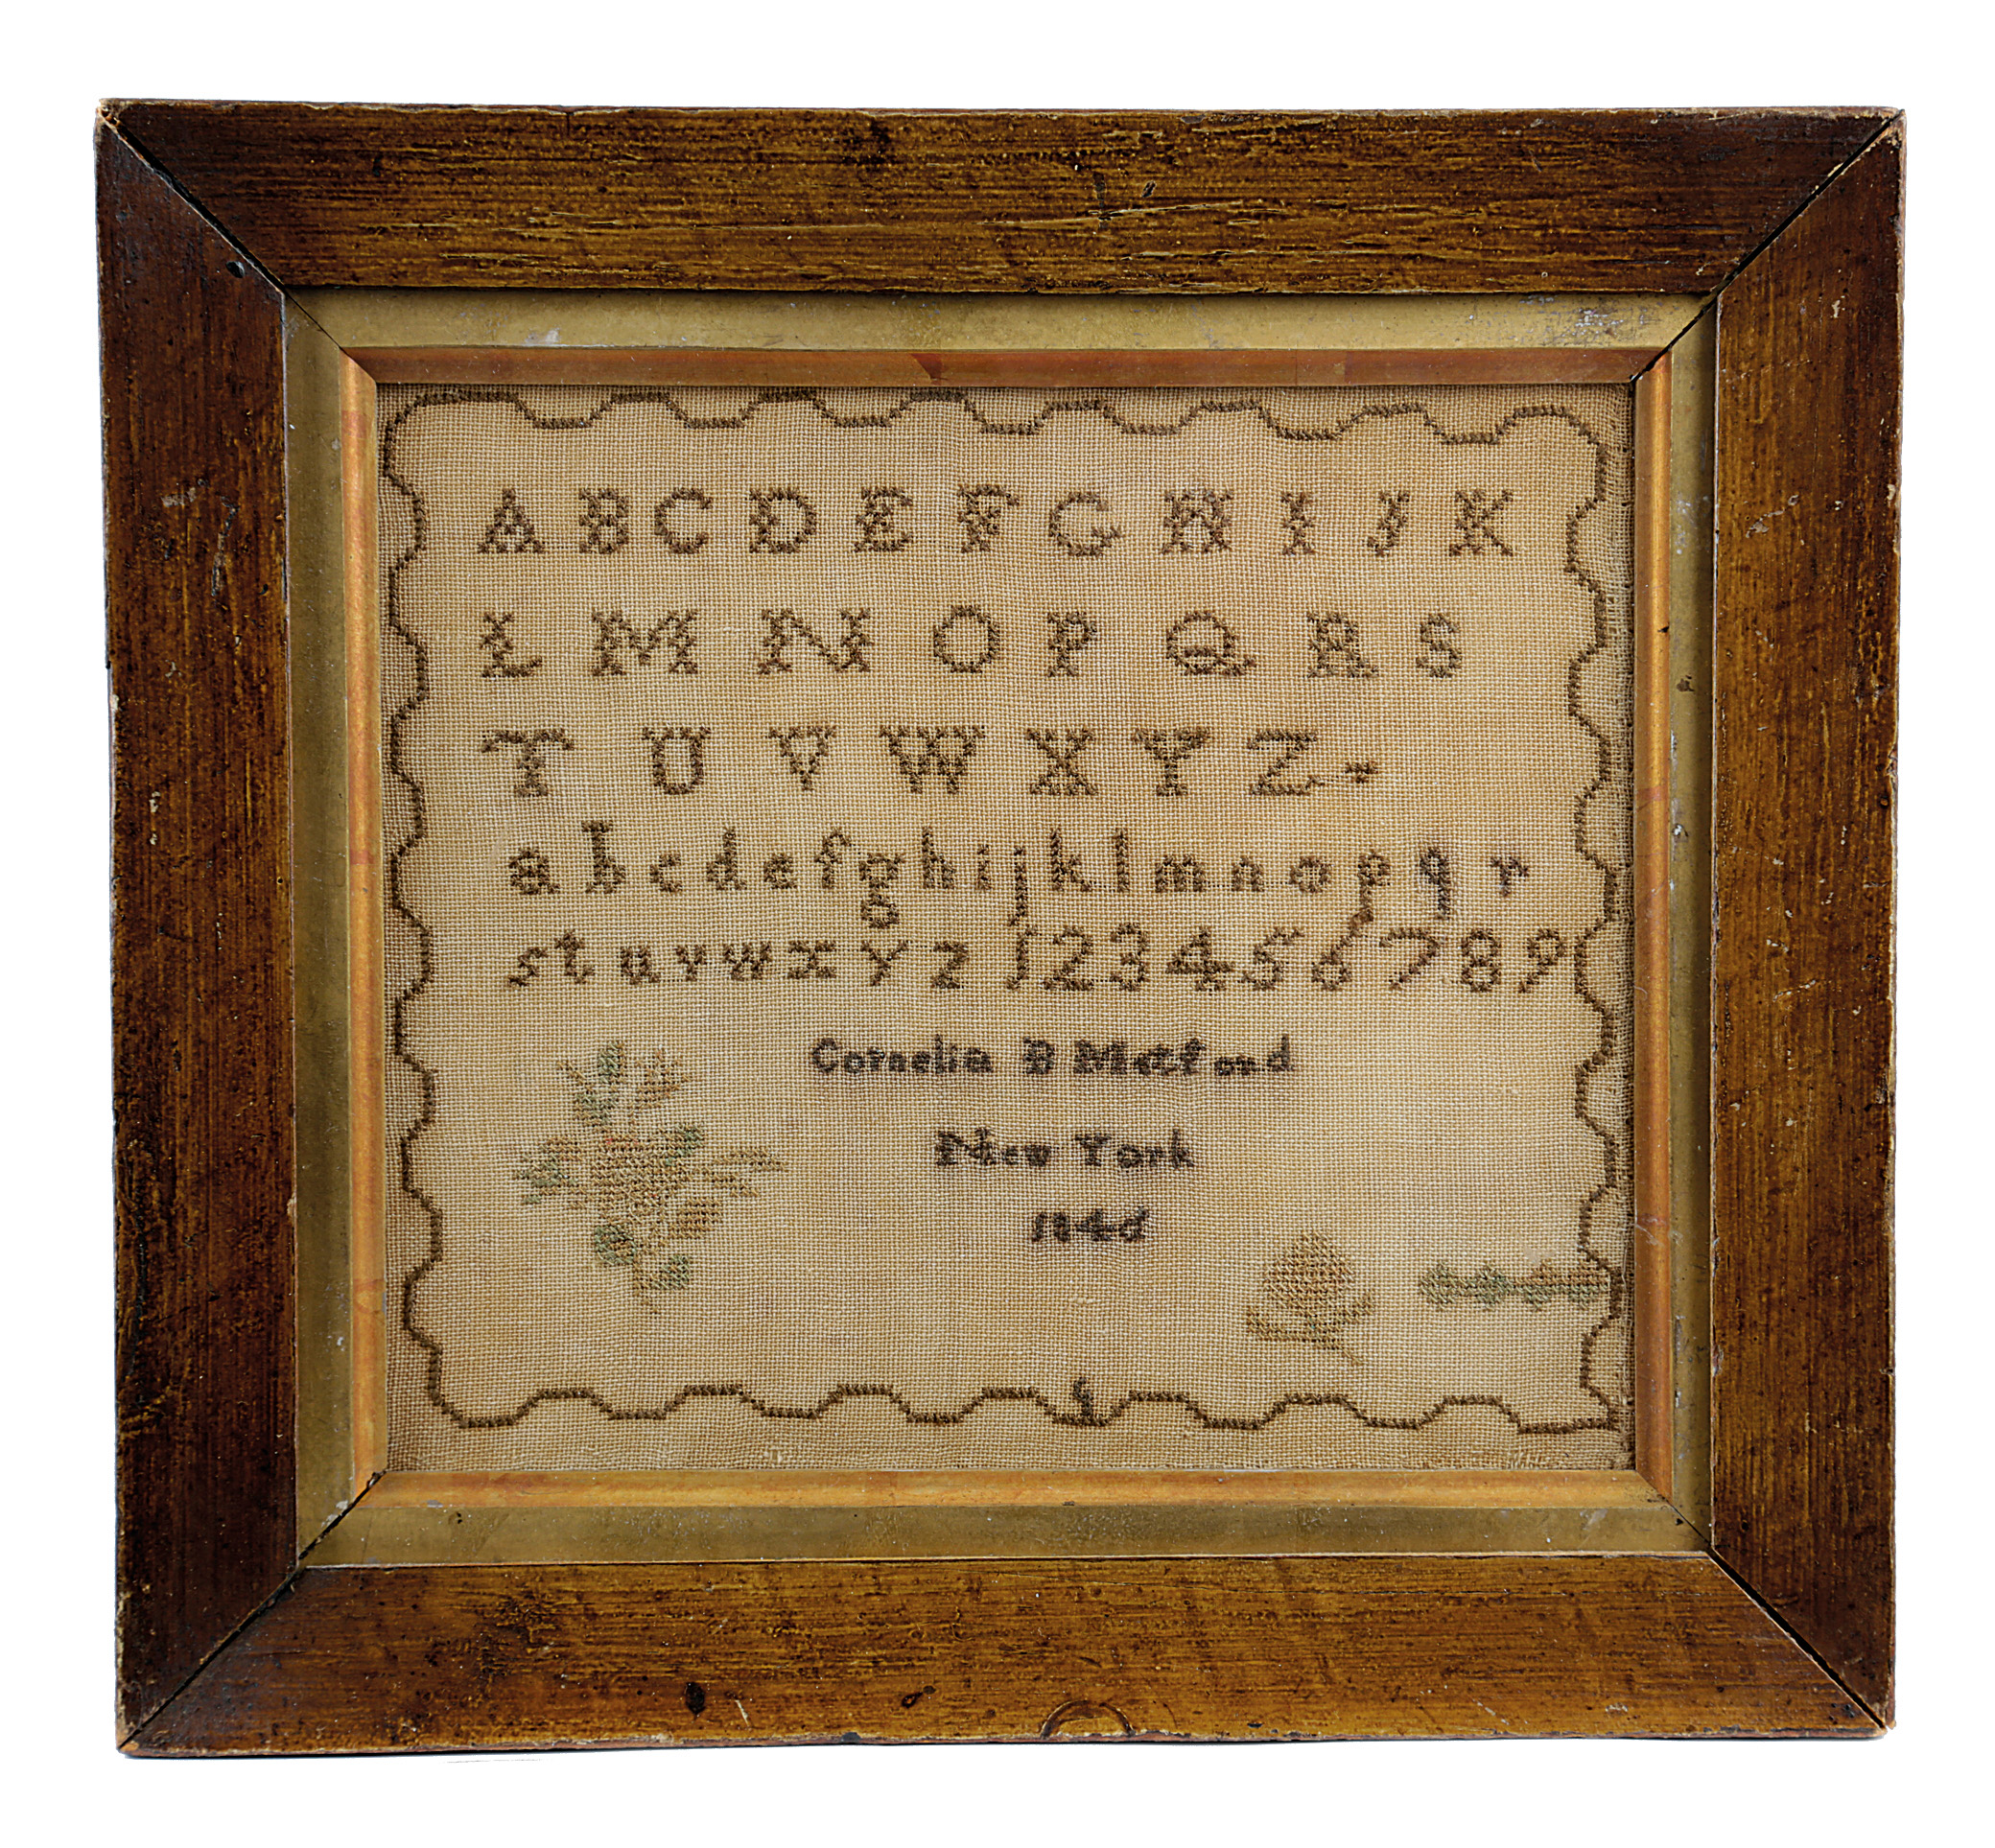 A B C D E F G H I J K
L M N O P Q R S
T U V W X Y Z
a b c d e f g h i j k l m n o p q r
s t u v w x y z 1 2 3 4 5 6 7 8 9
Cornelia B
New York